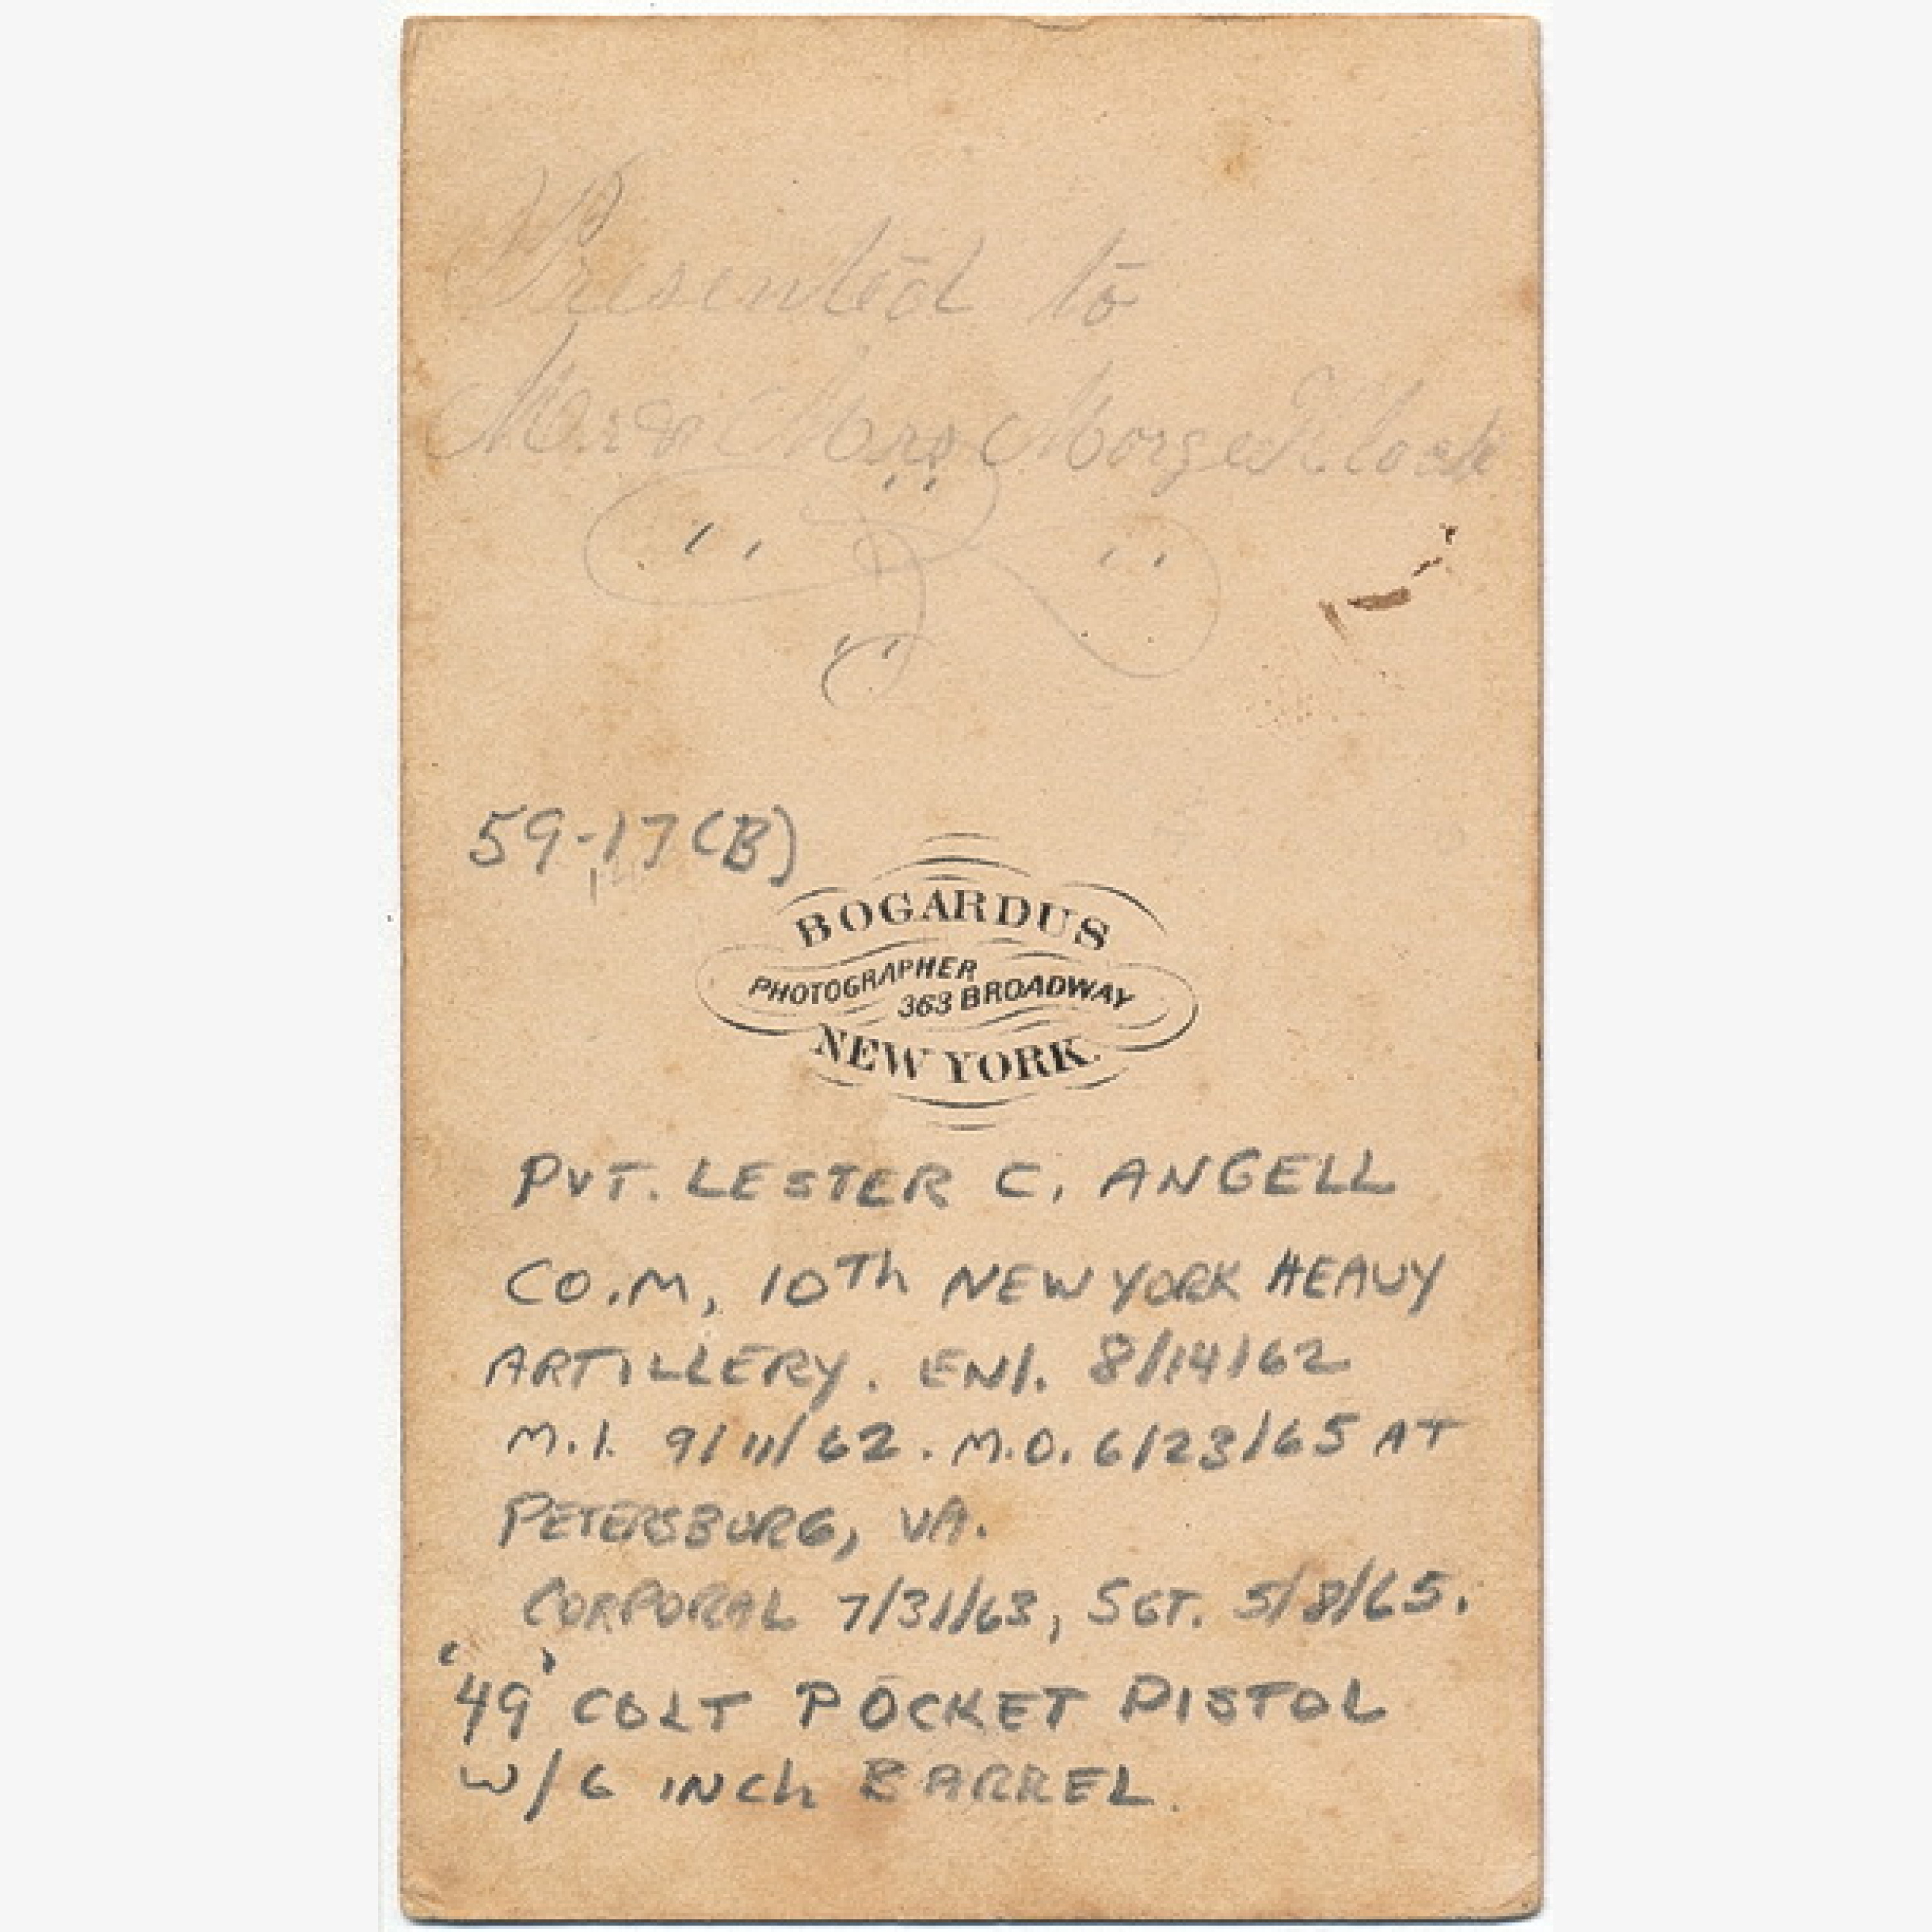 Presented to
59-17(B)
BOGARDUS
PHOTOGRAPHER
363 BROADWAY
NEW YORK.
PVT. LESTER C. ANGELL
CO. M, 10Th NEW YORK HEAVY
ARTILLERY. ENl. 8/14/62
M.I. 9/11/62. M.O. 6/23/65 AT
PETERSBURG, VA.
CORPORAL 7/31/63, SGT. 5/8/65.
'49' COLT POCKET PISTOL
W/6 INCh BARREL.